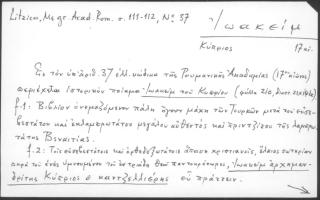 Litzica, Ms gr. Acad. Rom. σ. 111-112, Nº 37
Ἰωακεὶμ
Κύπριος 17 αἰ.
Εἰς τὸν ὑπ' ἀριθ. 37 ἑλ. κώδικα τῆς Ρουμανικῆς Ἀκαδημίας (17ου αἰῶνος)
περιέχεται ἱστορικὸν ποίημα Ἰωακεὶμ τοῦ Κυπρίου (φύλλα 210,
f. 1. Βιβλίον ὀνομαζόμενον πάλη ἤγουν μάχη τῶν Τουρκῶν μετὰ τοῦ εὐσε-
βεστάτου καὶ ἐκλαμπροτάτου μεγάλου αὐθεντὸς καὶ πρίντζιπος τῆς λαμπρο-
τάτης Βενετίας.
f. 2. Τοῖς εὐσεβεστάτοις καὶ ὀρθοδοξοτάτοις ἅπασι χριστιανοῖς, ἔλεος σωτηρίαν
παρὰ τοῦ ἑνὸς ὑμνουμένου τῇ τριάδι θεοῦ παντοκράτορος, Ἰωακεὶμ ἀρχιμαν-
δρίτης Κύπριος ὁ καντζελλιέρης εὖ πράττειν.